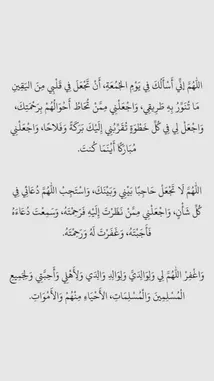 اللَّهُمَّ إِنِّي أَسْأَلُكَ فِي يَوْمِ الجُمُعَةِ، أَنْ تَجْعَلَ فِي قَلْبِي مِنَ اليَقِينِ
مَا تُنَوِّرُ بِهِ طَرِيقِي، وَاجْعَلْنِي مِمَّنْ تُحَاطُ أَحْوَالُهُمْ بِرَحْمَتِكَ،
وَاجْعَلْ لِي فِي كُلِّ خَطْوَةٍ تُقَرِّبُنِي إِلَيْكَ بَرَكَةً وَفَلَاحًا، وَاجْعَلْنِي
مُبَارَكًا أَيْنَمَا كُنتَ.
اللَّهُمَّ لَا تَجْعَلْ حَاجِبًا بَيْنِي وَبَيْنَكَ، وَاسْتَجِبْ اللَّهُمَّ دُعَائِي فِي
كُلِّ شَأْنٍ، وَاجْعَلْنِي مِمَّنْ نَظَرْتَ إِلَيْهِ فَرَحِمْتَهُ، وَسَمِعْتَ دُعَاءَهُ
فَأَجَبْتَهُ، وَغَفَرْتَ لَهُ وَرَحِمْتَهُ.
وَاغْفِرْ اللَّهُمَّ لِي وَلِوَالِدَيَّ وَلِوَالِدِ وَالِدَيَّ وَلِأَهْلِي وَأَحِبَّتِي وَلِجَمِيعِ
الْمُسْلِمِينَ وَالْمُسْلِمَاتِ، الأَحْيَاءِ مِنْهُمْ وَالأَمْوَاتِ.